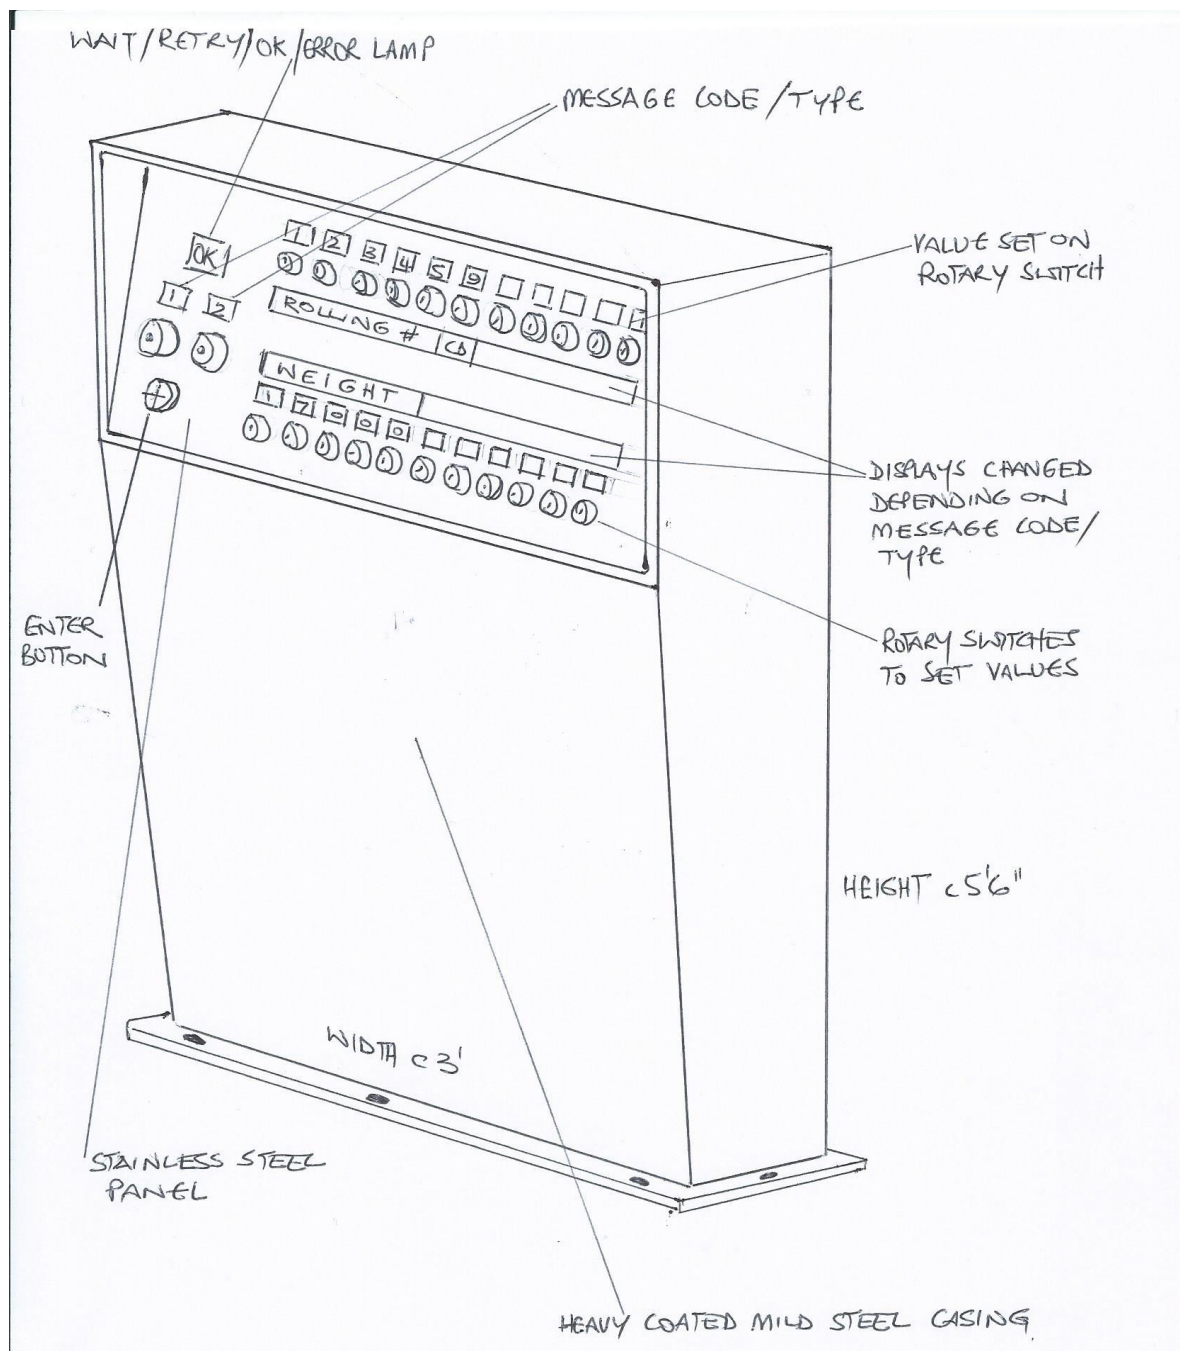 WAIT/RETRY/OK/ERROR LAMP
MESSAGE CODE/TYPE
VALUE SET ON
ROTARY SWITCH
OK
1 2
1 2 3 4 5 9
ROLLING # CD
WEIGHT
1 7 0 0 0
DISPLAYS CHANGED
DEPENDING ON
MESSAGE CODE/
TYPE
ENTER
BUTTON
ROTARY SWITCHES
TO SET VALUES
HEIGHT c5'6"
WIDTH c3'
STAINLESS STEEL
PANEL
HEAVY COATED MILD STEEL CASING